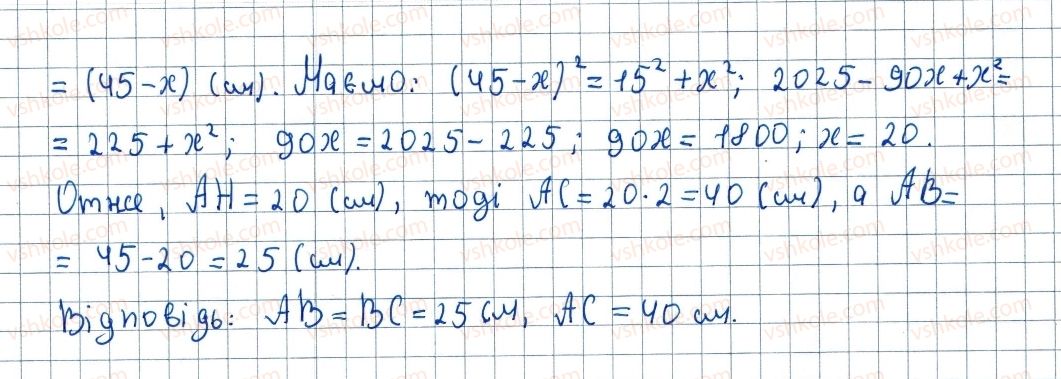 = (45-x) (см). Маємо: (45-x)² = 15² + x²; 2025 - 90x + x² =
= 225 + x²; 90x = 2025 - 225; 90x = 1800; x = 20.
Отже, AH = 20 (см), тоді AC = 20·2 = 40 (см), а AB =
= 45 - 20 = 25 (см).
Відповідь: AB = BC = 25 см, AC = 40 см.